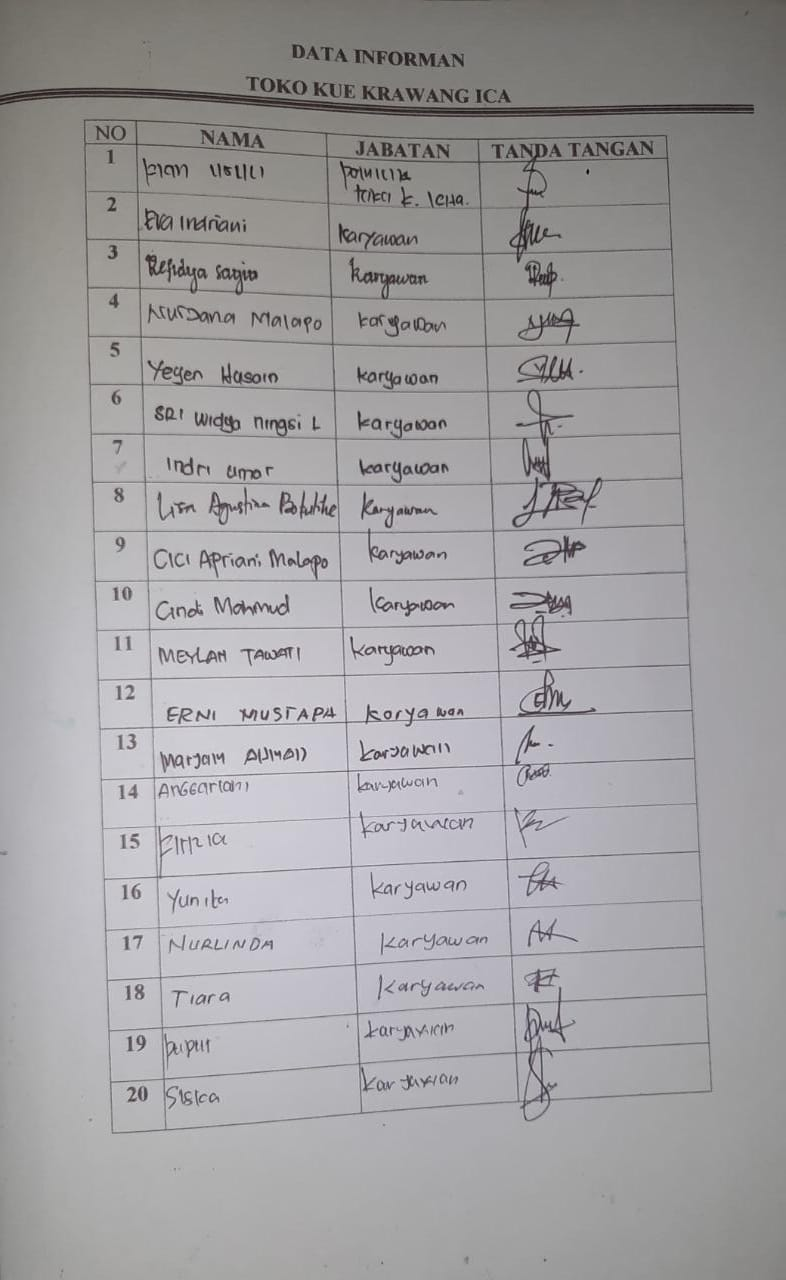 DATA INFORMAN
TOKO KUE KRAWANG ICA
NO NAMA JABATAN TANDA TANGAN
1
2 Eva Indriani Karyawan
3 Refidya karyawan
4 Nurdana Malapo karyawan
5 Yeyen Hasain karyawan
6 SRI Widya ningsi L karyawan
7 Indri umar karyawan
8 Agustina karyawan
9 CICI Apriani Malapo karyawan
10 Cindi Mahmud karyawan
11 MEYLAN TAWATI karyawan
12 ERNI MUSTAPA karyawan
13 Maryam karyawan
14 Anggariani karyawan
15 karyawan
16 Yunita karyawan
17 NURLINDA karyawan
18 Tiara karyawan
19 karyawan
20 Siska karyawan